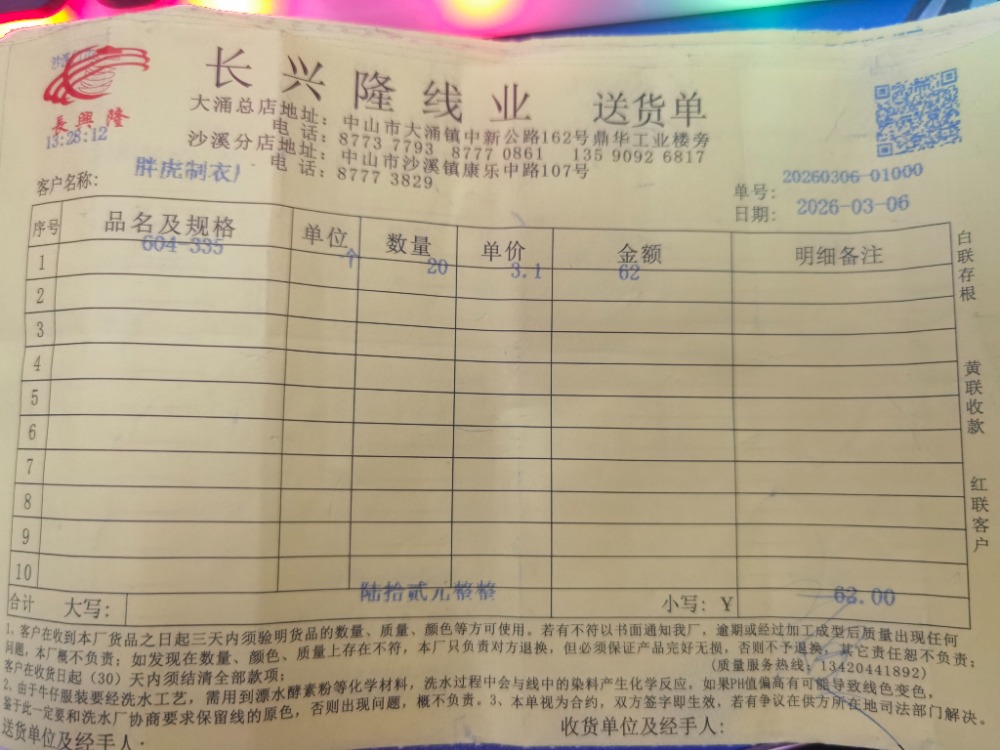 长兴隆线业 送货单
長興隆
大涌总店地址：中山市大涌镇中新公路162号鼎华工业楼旁
电话：8773 7793 8777 0861 135 9092 6817
沙溪分店地址：中山市沙溪镇康乐中路107号
电话：8777 3829
13:28:12
客户名称：胖虎制衣厂
单号：20260306-01000
日期：2026-03-06
序号 品名及规格 单位 数量 单价 金额 明细备注
1 604-335 个 20 3.1 62
2
3
4
5
6
7
8
9
10
合计 大写：陆拾贰元整整 小写：￥ 62.00
白联存根
黄联收款
红联客户
1、客户在收到本厂货品之日起三天内须验明货品的数量、质量、颜色等方可使用。若有不符以书面通知我厂，逾期或经过加工成型后质量出现任何
问题，本厂概不负责；如发现在数量、颜色、质量上存在不符，本厂只负责对方退换，但必须保证产品完好无损，否则不予退换，其它责任恕不负责；
客户在收货日起（30）天内须结清全部款项； （质量服务热线：13420441892）
2、由于牛仔服装要经洗水工艺，需用到漂水酵素粉等化学材料，洗水过程中会与线中的染料产生化学反应，如果PH值偏高有可能导致线色变色，
鉴于此一定要和洗水厂协商要求保留线的原色，否则出现问题，概不负责。3、本单视为合约，双方签字即生效，若有争议在供方所在地司法部门解决。
送货单位及经手人： 收货单位及经手人：